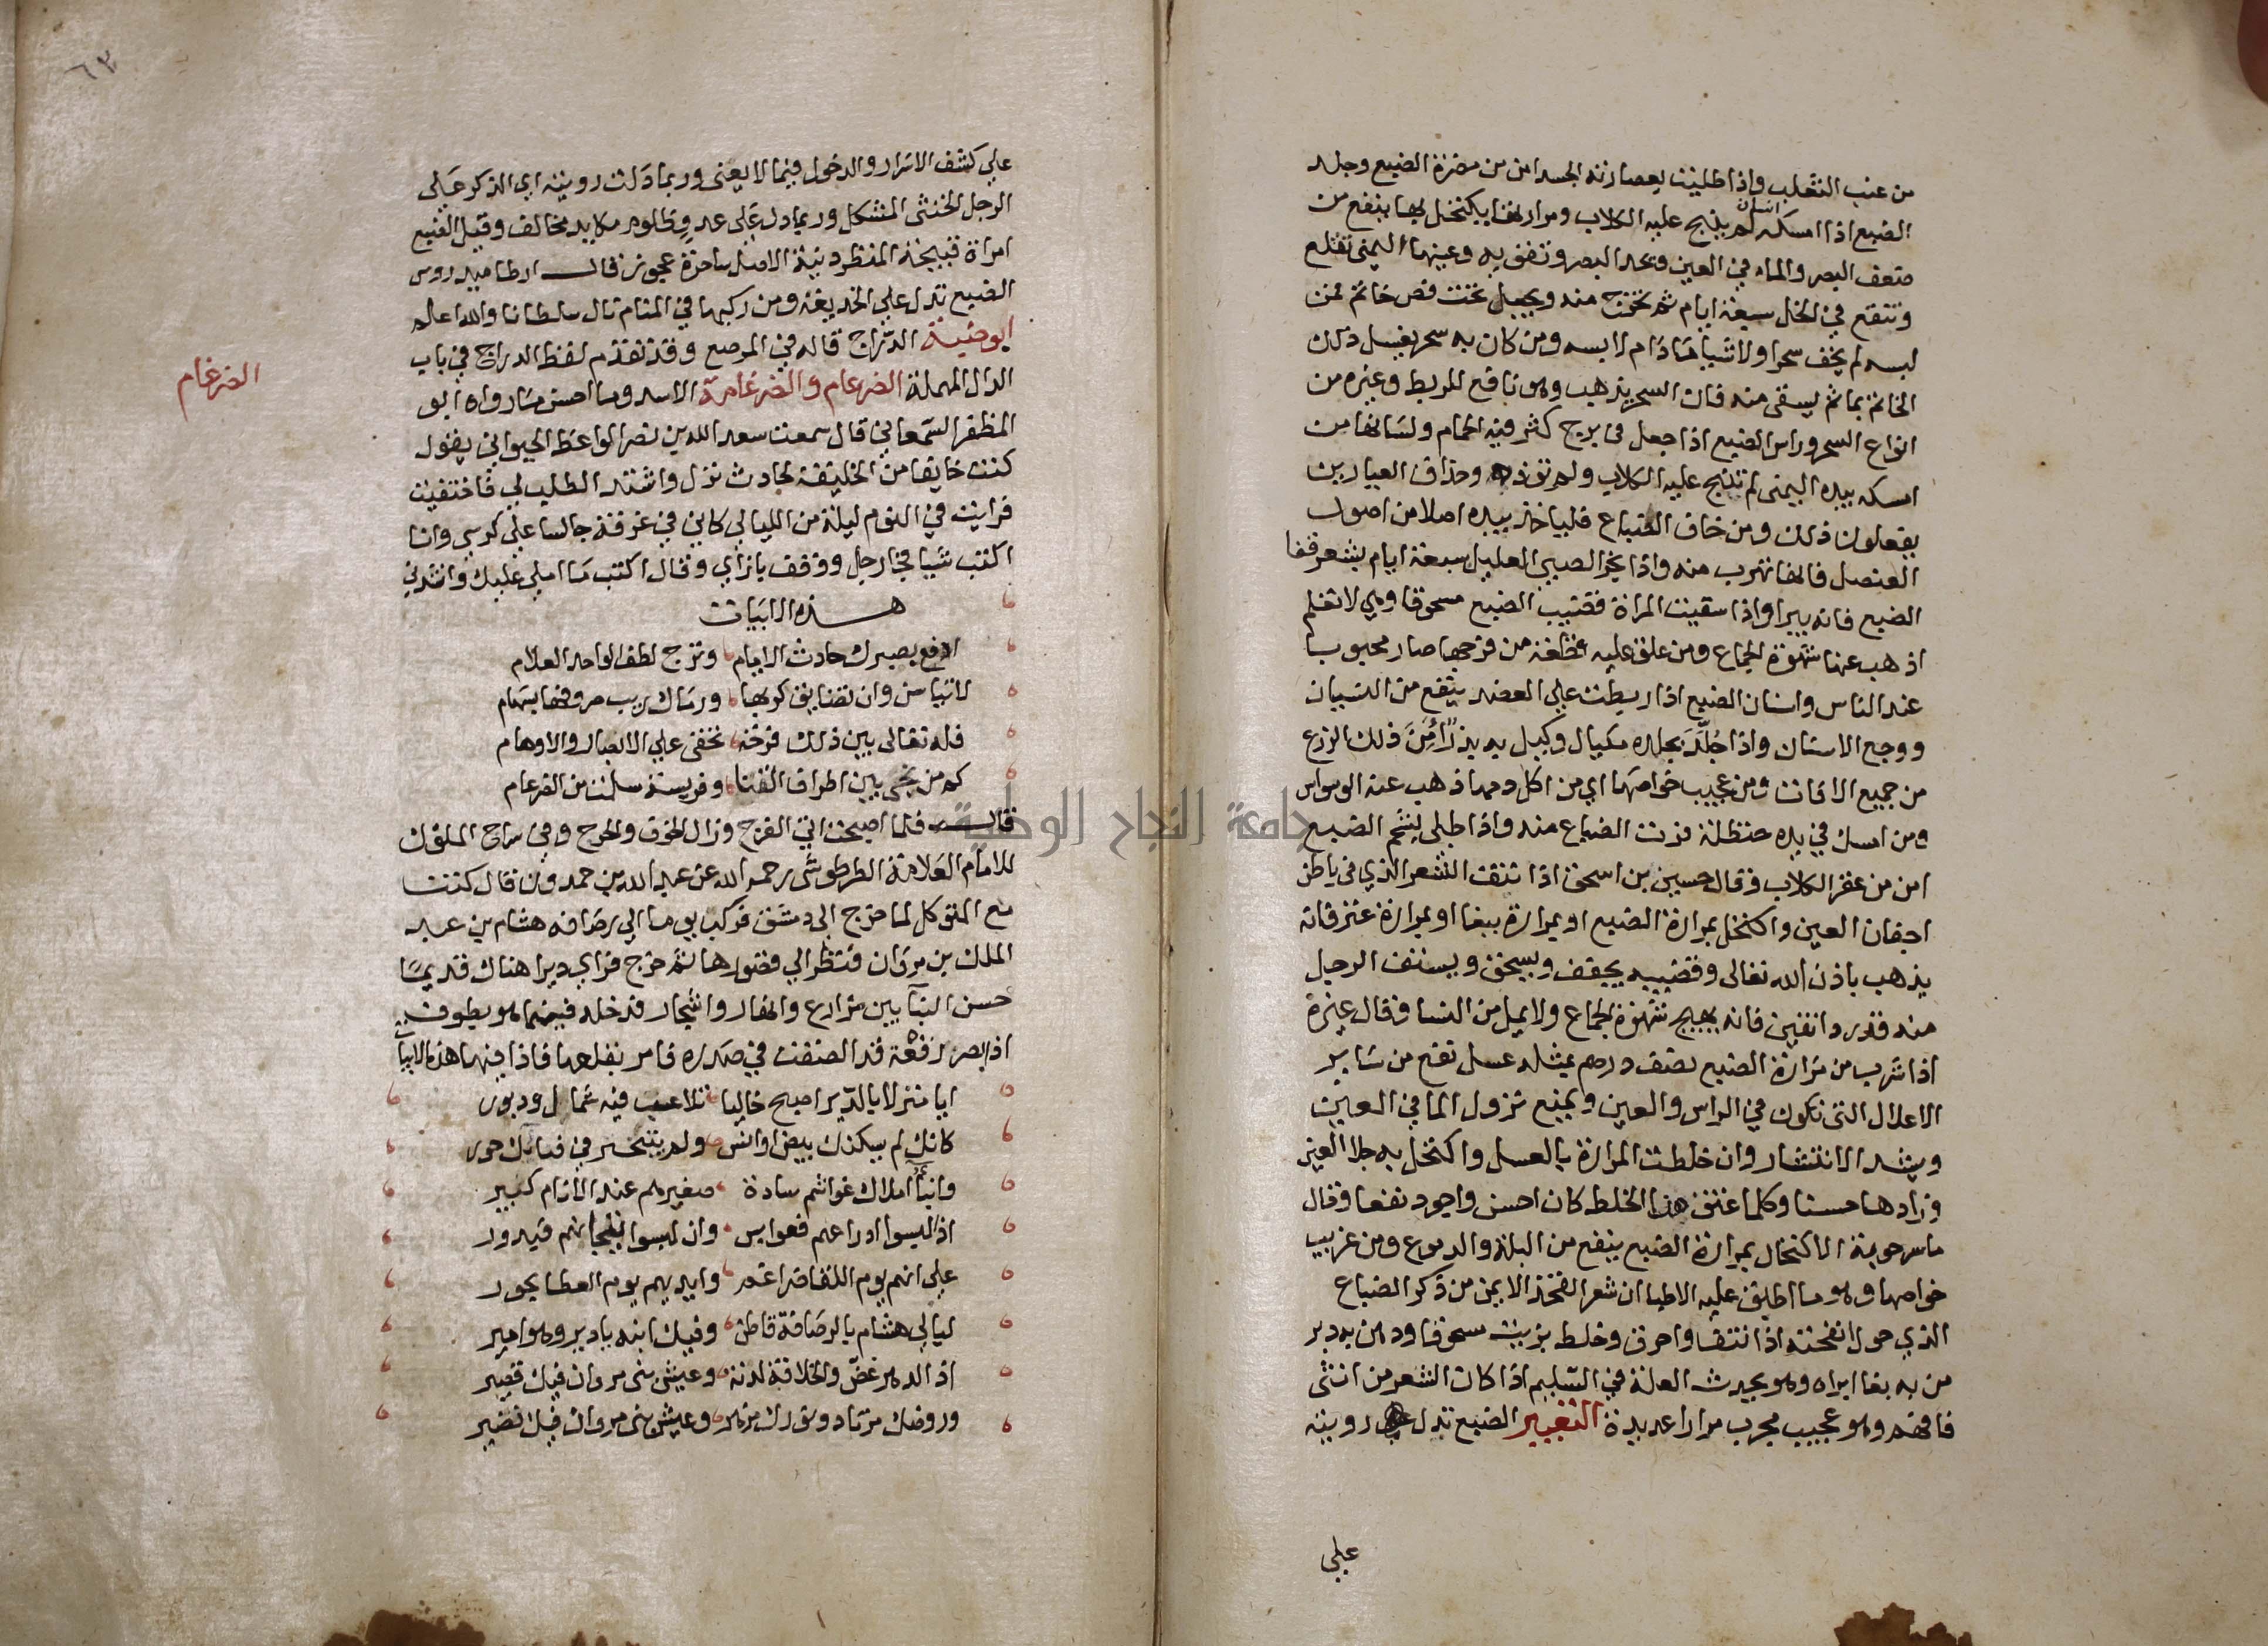 من عنب الثعلب واذا طليت بعصارته الجسد امن من مضرة الضبع وجلد
الضبع اذا امسكه انسان لم ينبح عليه الكلاب ومرارتها يكتحل بها ينفع من
ضعف البصر والماء في العين ويحد البصر وتنفق به وعينها اليمنى تقلع
وتنقع في الخل سبعة ايام ثم تخرج منه ويجعل تحت فص خاتم فمن
لبسه لم يخف سحرا ولا شيا ما دام لابسه ومن كان به سحر يغسل ذلك
الخاتم بما ثم يسقى منه فان السحر يذهب وهو نافع للمربط وغيره من
انواع السحر وراس الضبع اذا جعل في برج كثر فيه الحمام ولسانها من
امسكه بيده اليمنى لم تنبح عليه الكلاب ولم توذه وحذاق العيارين
يفعلون ذلك ومن خاف الضباع فلياخذ بيده اصلا من اصول
العنصل فانها تهرب منه واذا بخر الصبي العليل سبعة ايام بشعر قفا
الضبع فانه يبرا واذا سقيت المراة قضيب الضبع مسحوقا وهي لا تعلم
اذهب عنها شهوة الجماع ومن علق عليه قطعة من فرجها صار محبوبا
عند الناس واسنان الضبع اذا ربطت على العضد ينفع من النسيان
ووجع الاسنان واذا جلد بجلده مكيال وكيل به بذرا امن ذلك الزرع
من جميع الافات ومن عجيب خواصها اي من اكل دمها ذهب عنه الوسواس
ومن امسك في يده حنظلة فرت الضباع منه واذا طلي بشحم الضبع
امن من عقر الكلاب وقال حسين بن اسحق اذا نتف الشعر الذي في باطن
اجفان العين واكتحل بمرارة الضبع او بمرارة ببغا او بمرارة عنز فانه
يذهب باذن الله تعالى وقضيبه يجفف ويسحق ويستف الرجل
منه قدر دانقين فانه يهيج شهوة الجماع ولا يمل من النسا وقال غيره
اذا شرب من مرارة الضبع نصف درهم بمثله عسل نفع من ساير
الاعلال التي تكون في الراس والعين ويمنع نزول الما في العين
ويشد الانتشار وان خلطت المرارة بالعسل واكتحل به جلا العين
وزادها حسنا وكلما عتق هذا الخلط كان احسن واجود نفعا وقال
ماسرجويه الاكتحال بمرارة الضبع ينفع من البلة والدموع ومن غريب
خواصها وهو ما اطبق عليه الاطبا ان شعر الفخذ الايمن من ذكر الضباع
الذي حول انفحته اذا نتف واحرق وخلط بزيت سحوقا ودهن به دبر
من به بغا ابراه وهو يحدث العلة في السليم اذا كان الشعر من انثى
فافهم وهو عجيب مجرب مرارا عديدة التعبير الضبع تدل رويته
علي
٦٣
علي كشف الاسرار والدخول فيما لا يعني وربما دلت رويته اي الذكر علي
الرجل الخنثى المشكل وربما دل علي عدو وظلوم مكايد مخالف وقيل الضبع
امراة قبيحة المنظر دنيئة الاصل ساحرة عجوز قال ارطاميدروس
الضبع تدل علي الخديعة ومن ركبها في المنام نال سلطانا والله اعلم
ابو ضبة الدراج قاله في المرصع وقد تقدم لفظ الدراج في باب
الدال المهملة الضرغام والضرغامة الاسد وما احسن ما رواه ابو
الضرغام
المظفر السمعاني قال سمعت سعد الله بن نصر الواعظ الحيواني يقول
كنت خايفا من الخليفة لحادث نزل واشتد الطلب لي فاختفيت
فرايت في النوم ليلة من الليالي كاني في غرفة جالسا علي كرسي وانا
اكتب شيا فجا رجل ووقف بازاي وقال اكتب ما املي عليك وانشدني
هذه الابيات
ادفع بصبرك حادث الايام وترج لطف الواحد العلام
لا تياسن وان تضايق كربها ورماك ريب صروفها بسهام
فله تعالى بين ذلك فرجة تخفى علي الابصار والاوهام
كم من نجى بين اطراف القنا وفريسة سلمت من الضرغام
قال فلما اصبحت اتى الفرج وزال الخوف والحرج وفي سراج الملوك
للامام العلامة الطرطوشي رحمه الله عن عبد الله بن حمدون قال كنت
مع المتوكل لما خرج الى دمشق فركب يوما الي رصافة هشام بن عبد
الملك بن مروان فنظر الي قصورها ثم خرج فراي ديرا هناك قديما
حسن البنا بين مزارع وانهار واشجار فدخله فبينما هو يطوف به
اذ ابصر رقعة قد الصقت في صدره فامر بقلعها فاذا فيها هذه الابيات
ايا منزلا بالدير اصبح خاليا تلاعب فيه شمال ودبور
كانك لم يسكنك بيض اوانس ولم يتبختر في فنايك حور
وابناء املاك غواشم سادة صغيرهم عند الانام كبير
اذا لبسوا ادراعهم فعوابس وان لبسوا تيجانهم فبدور
علي انهم يوم اللقا ضراغم وايديهم يوم العطا بحور
ليالي هشام بالرصافة قاطن وفيك ابنه يا دير وهو امير
اذ الدهر غض والخلافة لدنة وعيش بني مروان فيك قصير
وروضك مرتاد ونورك مزهر وعيش بني مروان فيك نضير
جامعة النجاح الوطنية